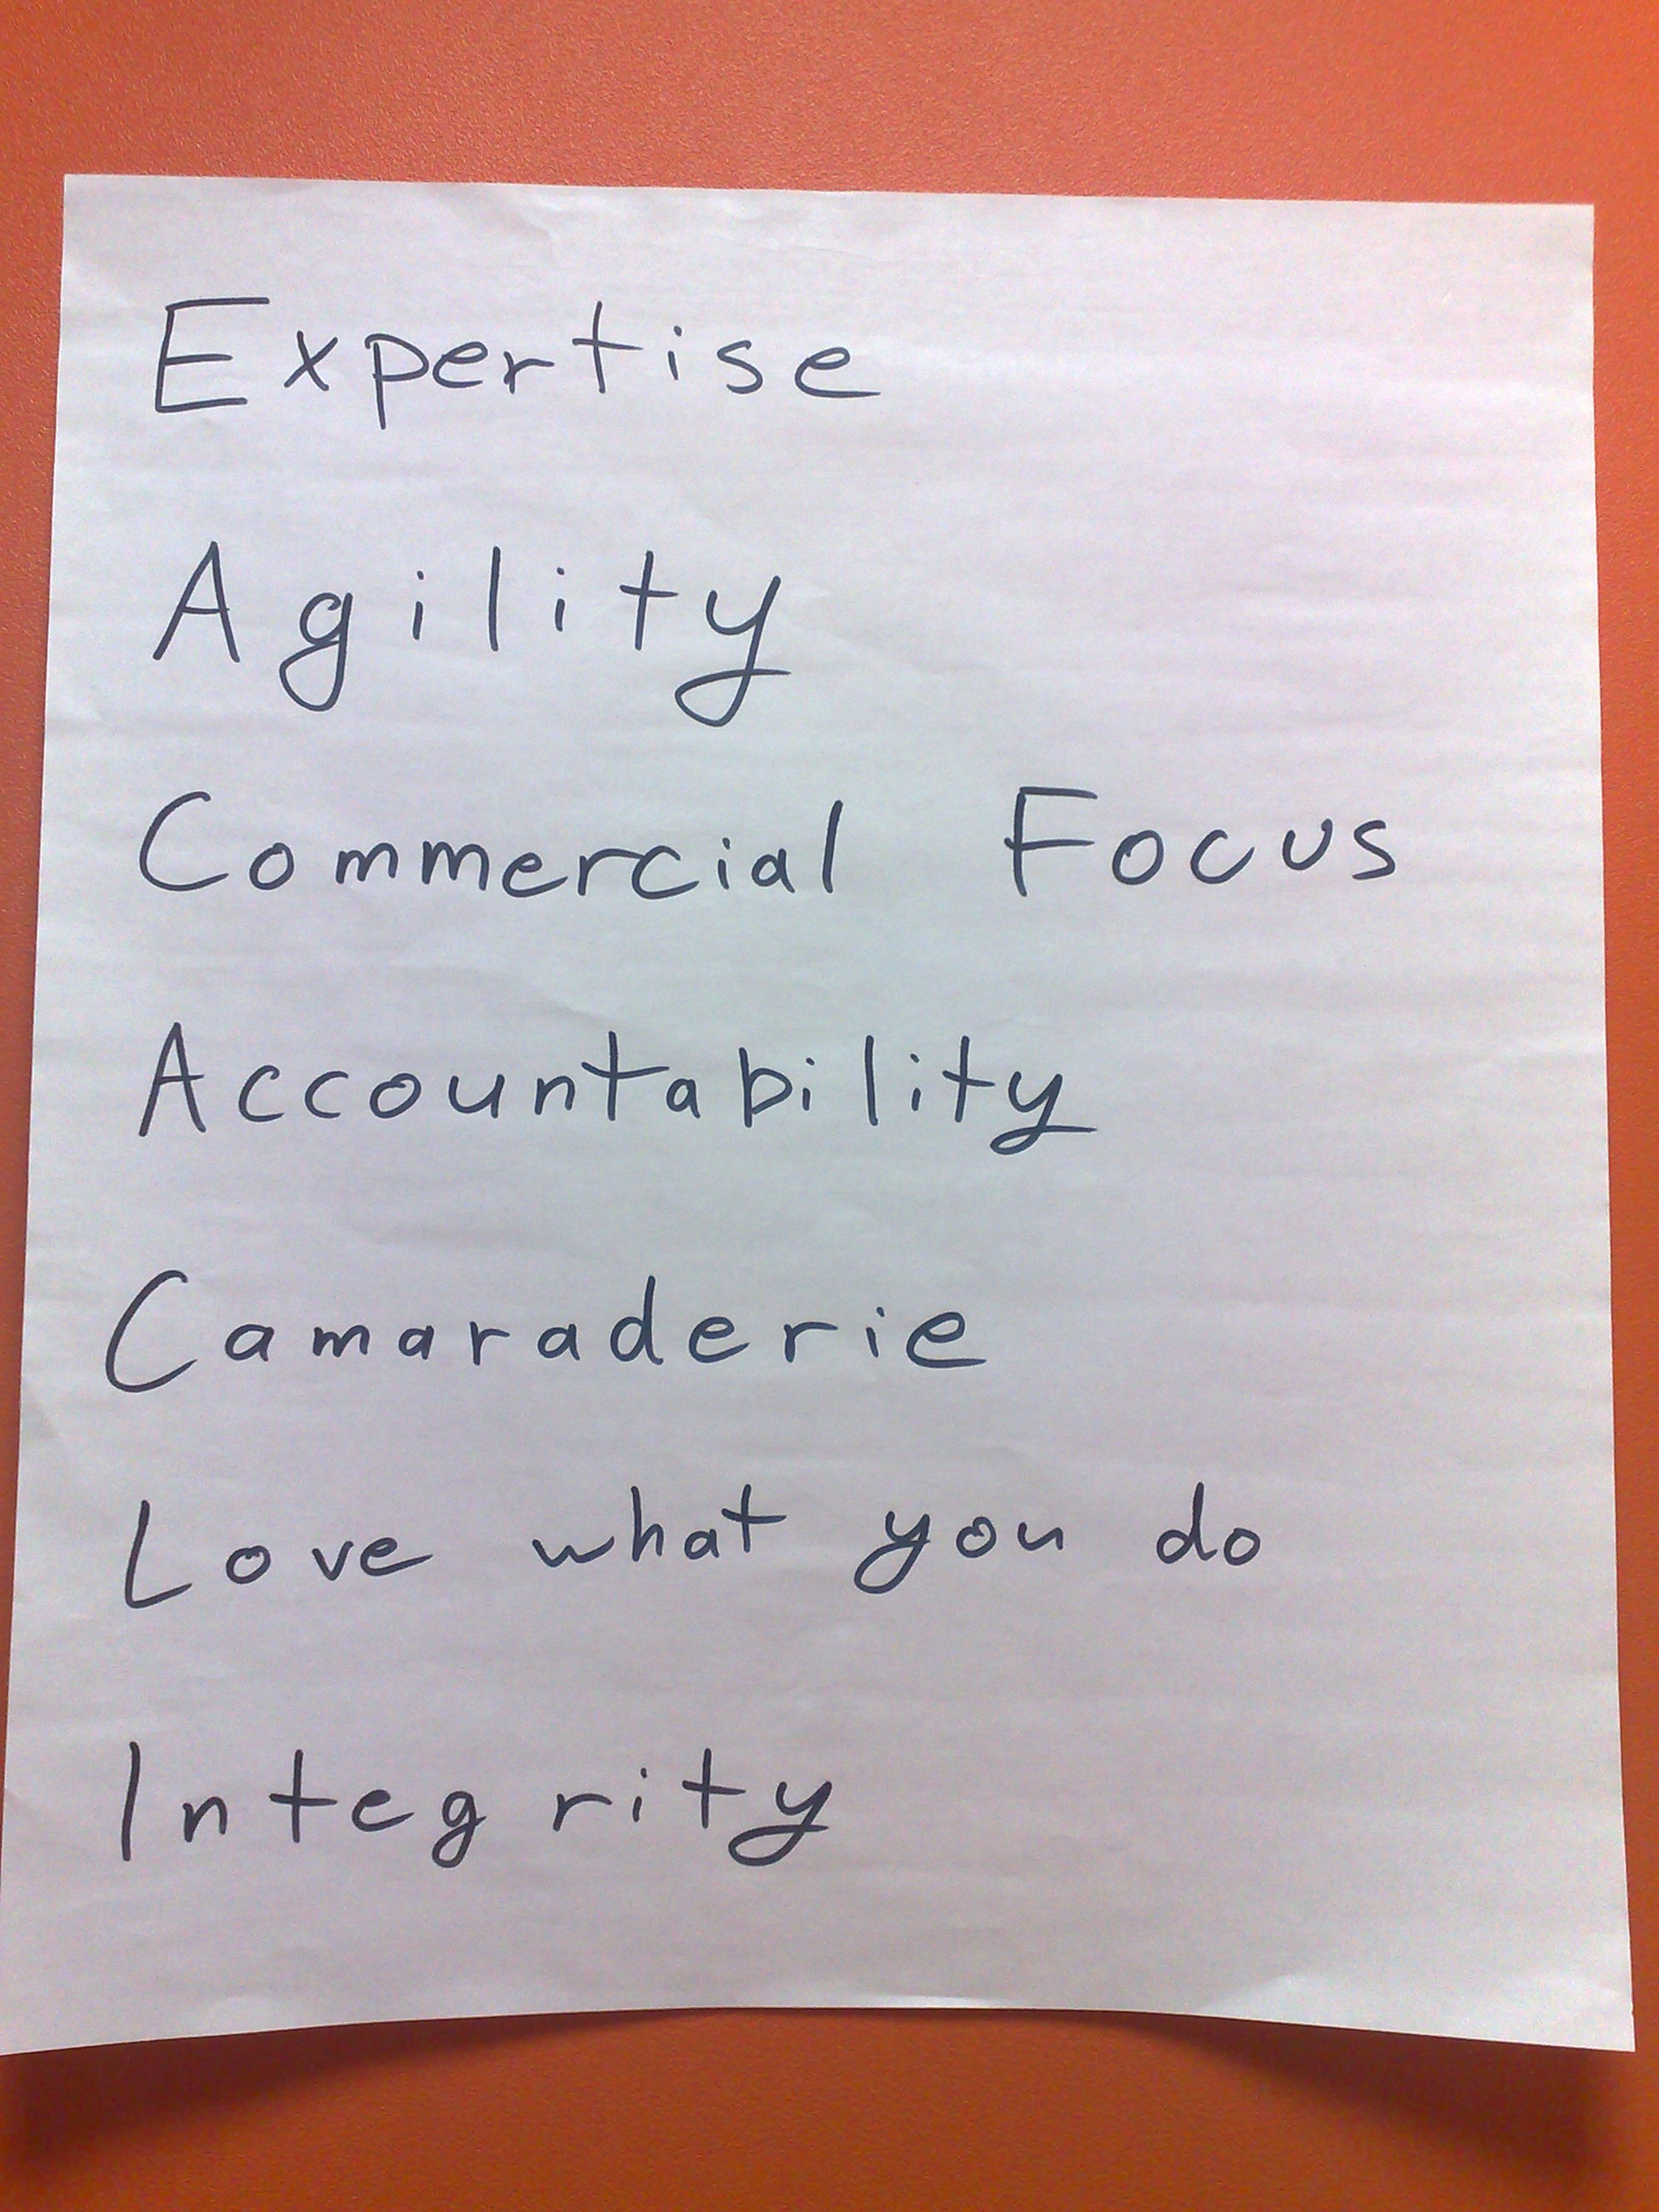 Expertise
Agility
Commercial Focus
Accountability
Camaraderie
Love what you do
Integrity